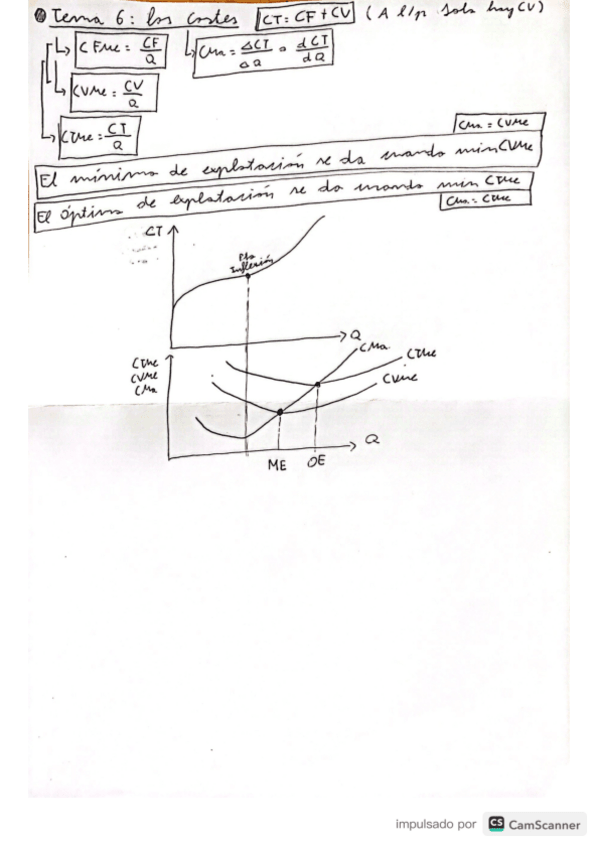 Tema 6: los costes CT = CF + CV (A l/p solo hay CV)
CFMe = CF/Q CMa = ΔCT/ΔQ o dCT/dQ
CVMe = CV/Q
CTMe = CT/Q
CMa = CVMe
El mínimo de explotación se da cuando min CVMe
El óptimo de explotación se da cuando min CTMe
CMa = CTMe
CT
Pto
Inflexión
Q
CTMe
CVMe
CMa
CMa
CTMe
CVMe
Q
ME OE
impulsado por CS CamScanner